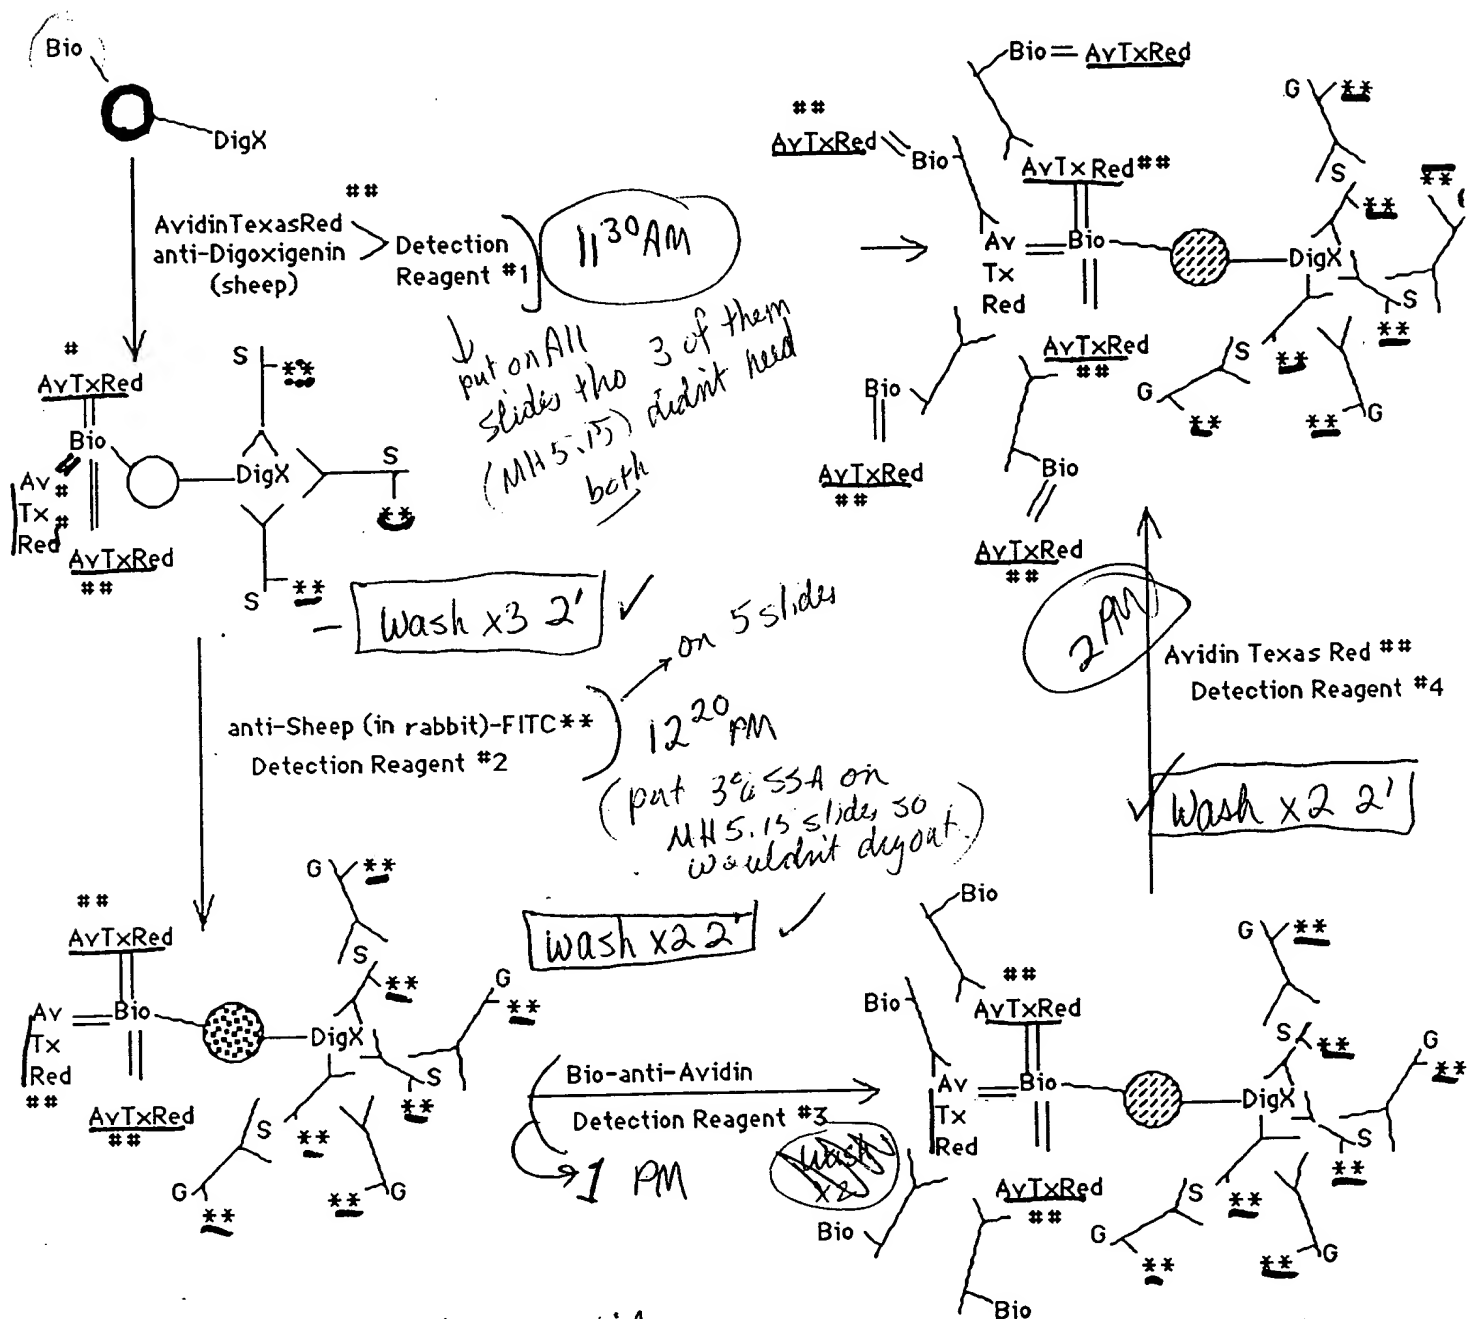 Bio
DigX
##
AvidinTexasRed
anti-Digoxigenin
(sheep)
Detection
Reagent #1
11 30 AM
put on All
slides tho 3 of them
(MH 5.15) didn't need
both
#
AvTxRed
Bio
Av #
Tx #
Red
AvTxRed
##
DigX
S
**
S
**
S
**
Wash x3 2' ✓
anti-Sheep (in rabbit)-FITC**
Detection Reagent #2
on 5 slides
12 20 PM
(put 3% SSA on
MH 5.15 slides so
wouldn't dry out)
wash x2 2' ✓
##
AvTxRed
Av
Tx
Red
##
Bio
AvTxRed
##
DigX
G
**
S
**
G
**
S
**
S
**
G
**
G
**
Bio-anti-Avidin
Detection Reagent #3
1 PM
Wash
x2
Bio
Bio
##
AvTxRed
Av
Tx
Red
Bio
AvTxRed
##
Bio
Bio
DigX
G
**
S
**
G
**
S
**
S
**
G
**
G
**
✓ Wash x2 2'
Avidin Texas Red ##
Detection Reagent #4
2 PM
Bio
AvTxRed
##
AvTxRed
Bio
AvTxRed##
Av
Tx
Red
Bio
AvTxRed
##
Bio
AvTxRed
##
Bio
AvTxRed
##
DigX
G
**
S
**
**
S
**
S
**
G
**
G
**